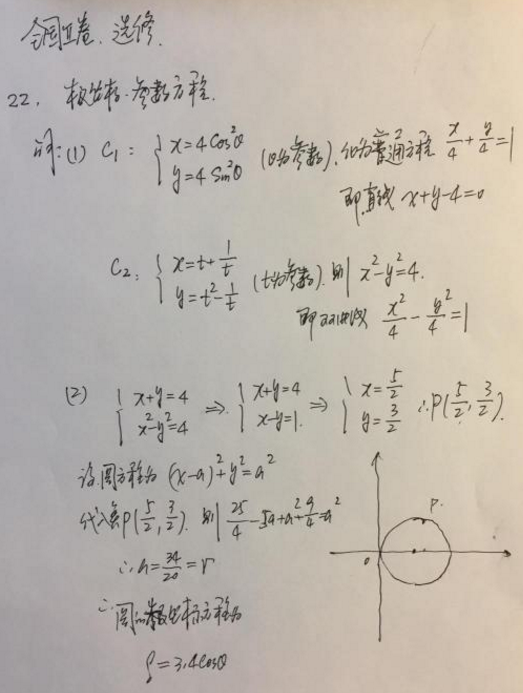 全国II卷. 选修.
22. 极坐标·参数方程.
解: (1) C1: { x=4cos²θ y=4sin²θ (θ为参数). 化为普通方程 x/4+y/4=1
即直线 x+y-4=0
C2: { x=t+1/t y=t²-1/t (t为参数). 则 x²-y²=4.
即双曲线 x²/4-y²/4=1
(2) { x+y=4 x²-y²=4 ⇒ { x+y=4 x-y=1. ⇒ { x=5/2 y=3/2 ∴P(5/2, 3/2).
设圆方程为 (x-a)²+y²=a²
代入点P(5/2, 3/2). 则 25/4-5a+a²+9/4=a²
∴a=34/20=r
∴圆的极坐标方程为
ρ=3.4cosθ
P.
o